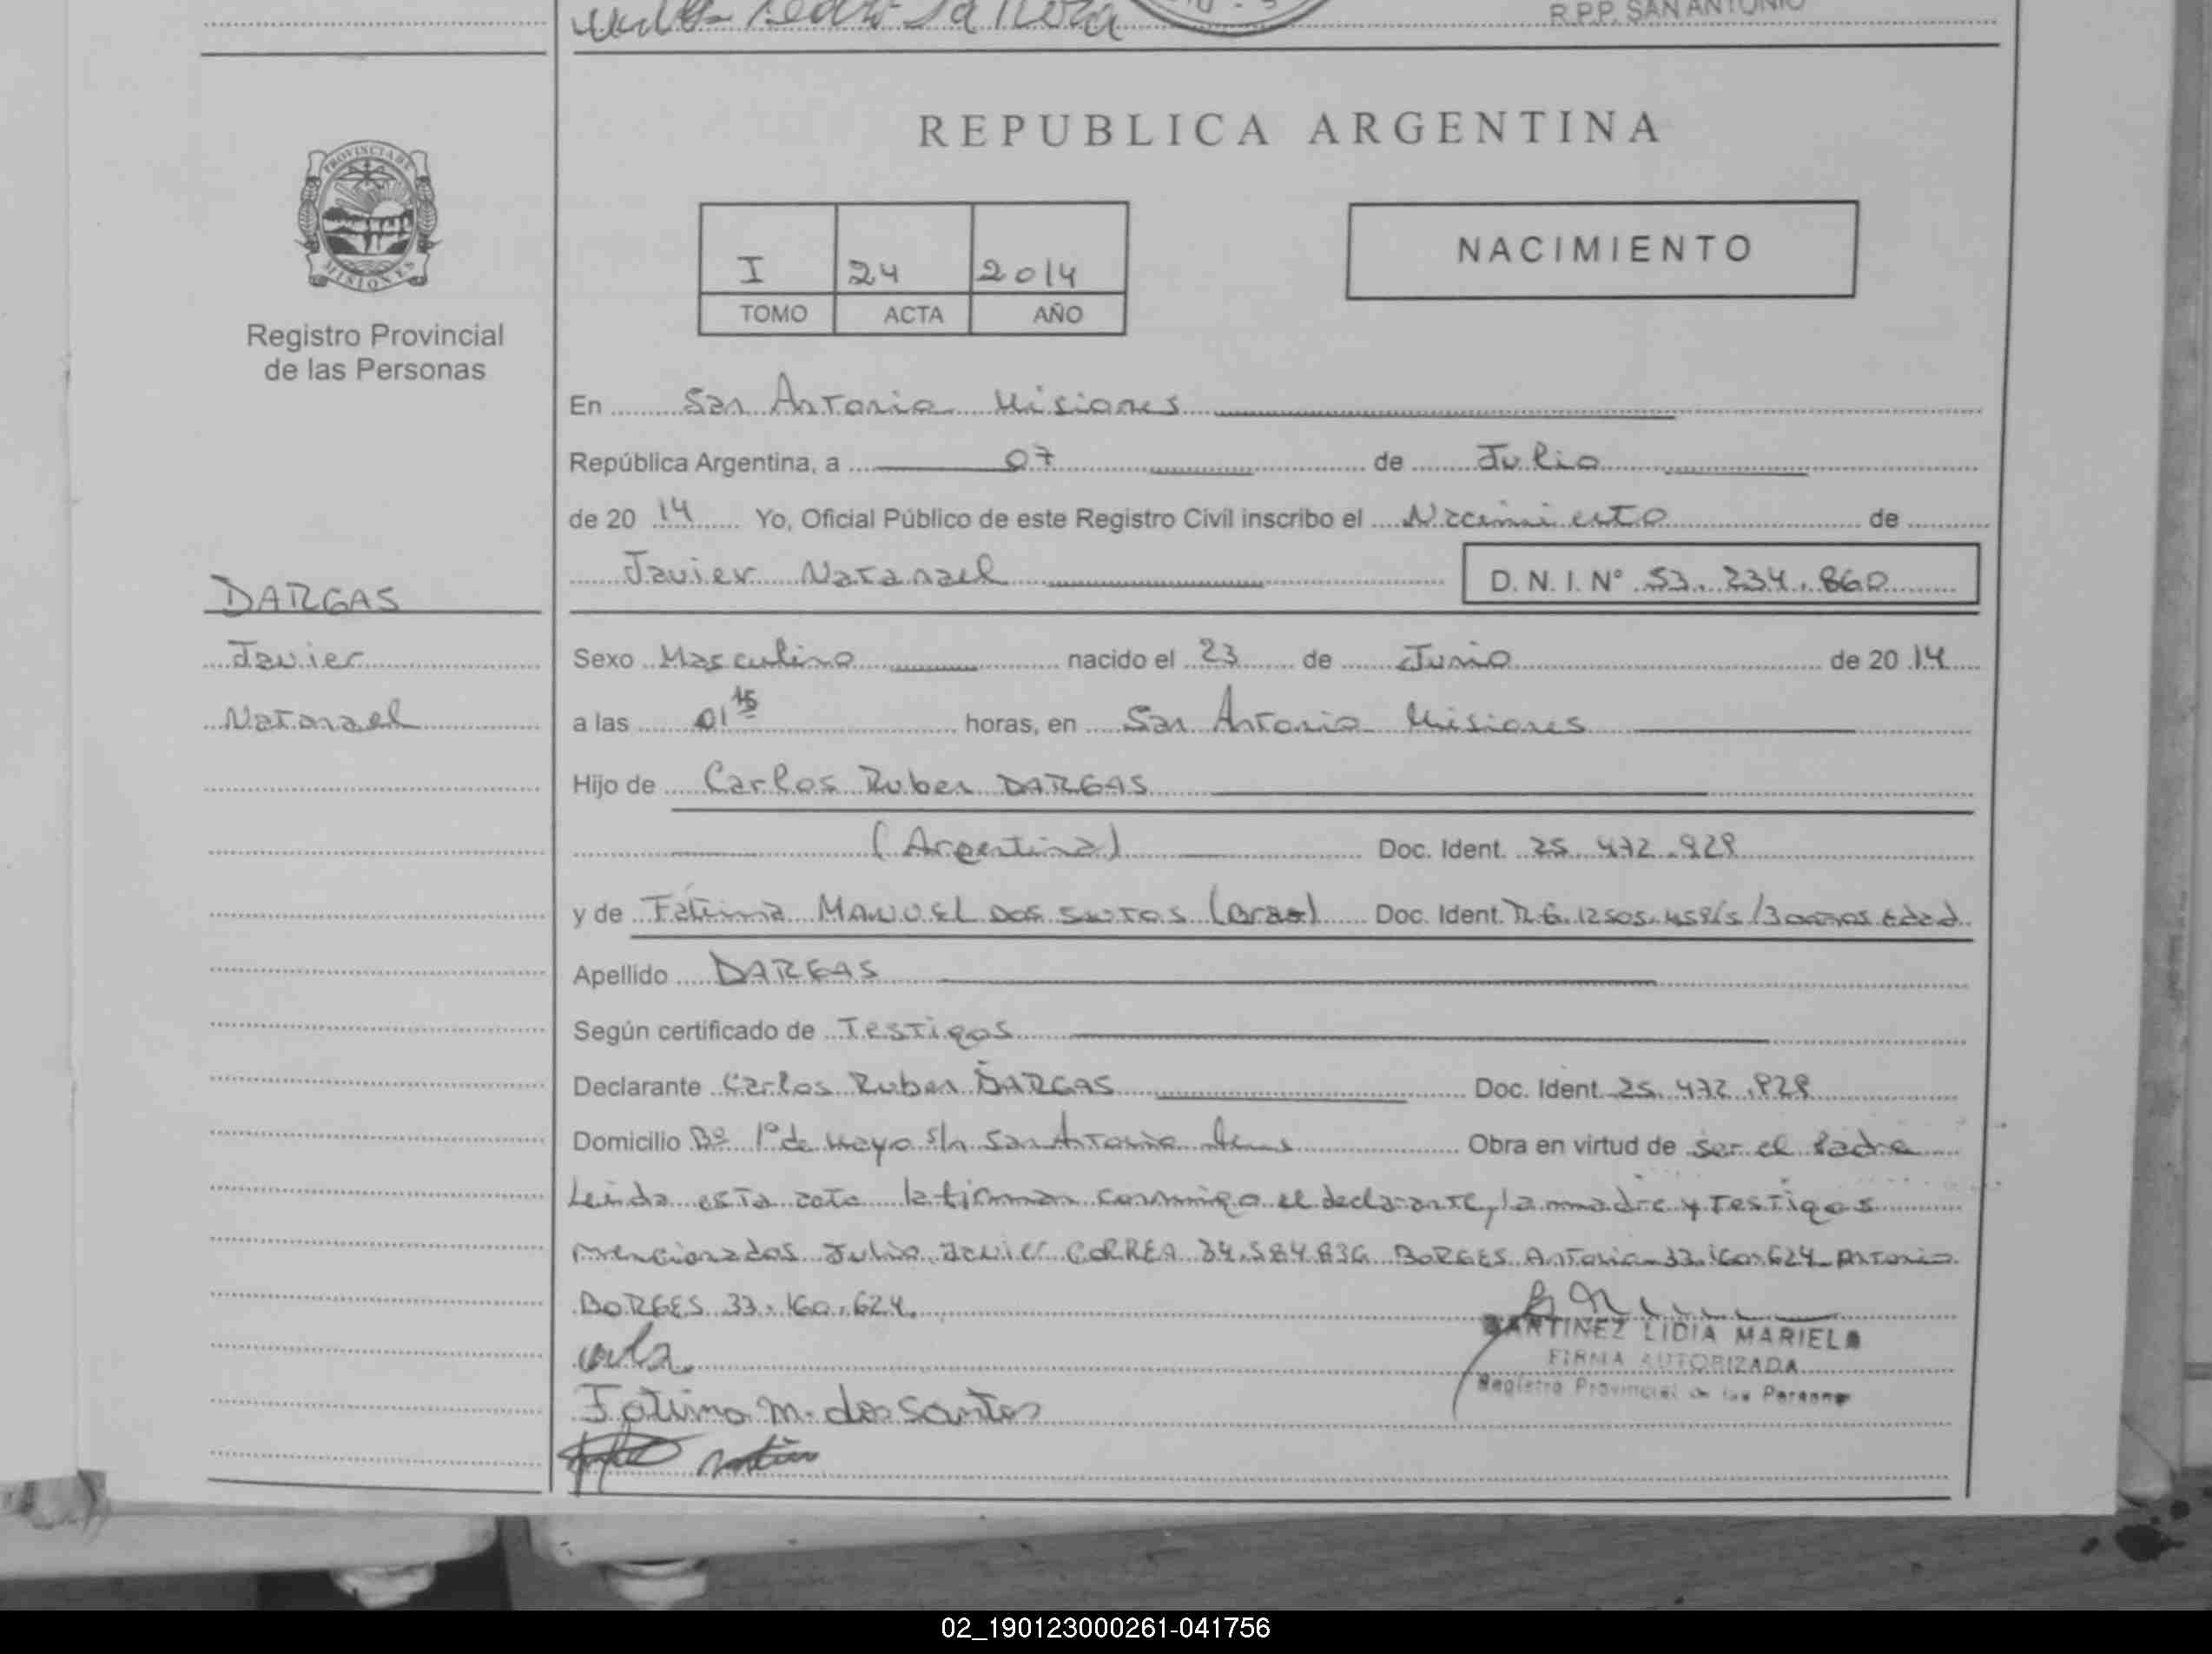 R.P.P. SAN ANTONIO
PROVINCIA DE
MISIONES
Registro Provincial
de las Personas
DARGAS
Javier
Natanael
REPUBLICA ARGENTINA
I 24 2014
TOMO ACTA AÑO
NACIMIENTO
En San Antonio Misiones
República Argentina, a 07 de Julio
de 20 14 Yo, Oficial Público de este Registro Civil inscribo el Nacimiento de
Javier Natanael D. N. I. N° 53.234.860
Sexo Masculino nacido el 23 de Junio de 20 14
a las 01 15 horas, en San Antonio Misiones
Hijo de Carlos Ruben DARGAS
(Argentina) Doc. Ident. 25.472.929
y de Fátima MANUEL DOS SANTOS (Bras) Doc. Ident. R.G. 12505. edad
Apellido DARGAS
Según certificado de Testigos
Declarante Carlos Ruben DARGAS Doc. Ident. 25.472.929
Domicilio B° 1° de Mayo s/n San Antonio Obra en virtud de ser el Padre
Leída esta acta la firman conmigo el declarante, la madre y Testigos
mencionados Julio Javier CORREA 34.584.836 BORGES Antonio 33.160.624 Antonio
BORGES 33.160.624.
MARTINEZ LIDIA MARIELA
FIRMA AUTORIZADA
Registro Provincial de las Personas
Fatima m. dos Santos
02_190123000261-041756